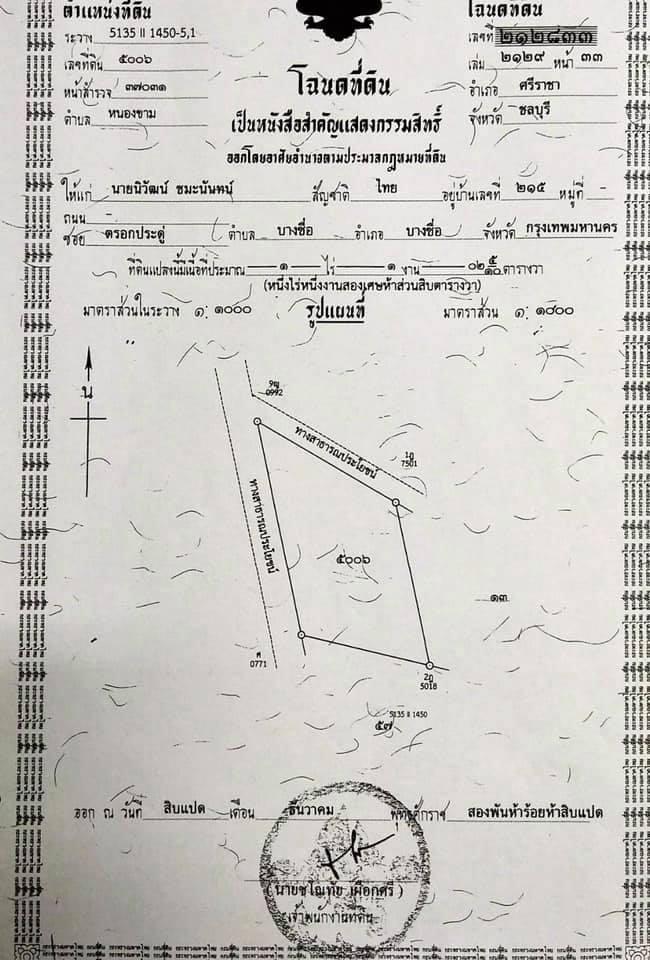 ตำแหน่งที่ดิน
โฉนดที่ดิน
ระวาง 5135 II 1450-5,1
เลขที่ ๒๑๒๘๓๓
เลขที่ดิน ๕๐๐๖
เล่ม ๒๑๒๙ หน้า ๓๓
หน้าสำรวจ ๓๗๐๓๑
อำเภอ ศรีราชา
ตำบล หนองขาม
จังหวัด ชลบุรี
โฉนดที่ดิน
เป็นหนังสือสำคัญแสดงกรรมสิทธิ์
ออกโดยอาศัยอำนาจตามประมวลกฎหมายที่ดิน
ให้แก่ นายนิวัฒน์ ชมะนันทน์ สัญชาติ ไทย อยู่บ้านเลขที่ ๒๑๕ หมู่ที่ -
ถนน -
ซอย ตรอกประดู่ ตำบล บางซื่อ อำเภอ บางซื่อ จังหวัด กรุงเทพมหานคร
ที่ดินแปลงนี้มีเนื้อที่ประมาณ ๑ ไร่ ๑ งาน ๐๒ ๕/๑๐ ตารางวา
(หนึ่งไร่หนึ่งงานสองเศษห้าส่วนสิบตารางวา)
มาตราส่วนในระวาง ๑: ๑๐๐๐ รูปแผนที่ มาตราส่วน ๑: ๑๐๐๐
น
0992
ทางสาธารณประโยชน์
7501
ทางสาธารณประโยชน์
๕๐๐๖
๑๓
0771
5018
5135 II 1450
๕๗
ออก ณ วันที่ สิบแปด เดือน ธันวาคม พุทธศักราช สองพันห้าร้อยห้าสิบแปด
เจ้าพนักงานที่ดิน